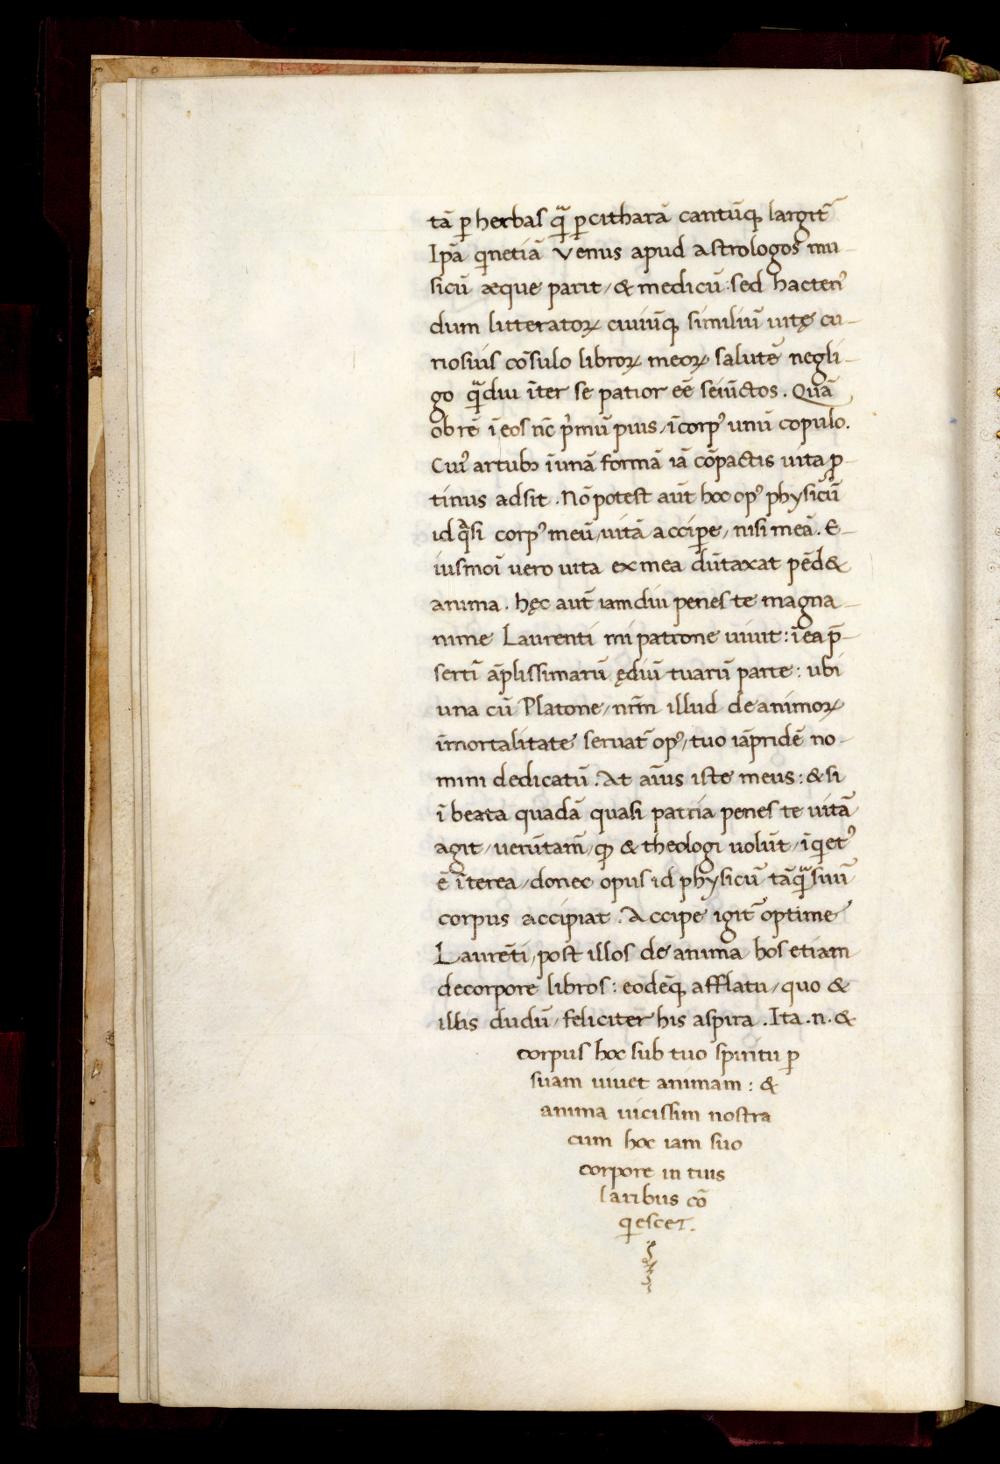 tā ꝑ herbas q̄ ꝑ citharā cantūq; largit̄
Ipā qnetiā Venus apud astrologos mu-
sicū æque parit, & medicū: sed hacten⁹
dum litteratoꝝ ciuiūq; similiū uitę cu-
riosius cōsulo libroꝝ meoꝝ salutē negli-
go q̄diu īter se patior eē seiūctos. Quā
ob rē ī eos nc̄ pͥmū pius, ī corp⁹ unū copulo.
Cui⁹ artubꝫ ī unā formā iā cōpactis uita ꝓ-
tinus adsit. Nō potest aūt hoc op⁹ physicū
id q̄si corp⁹ meū, uitā accipe, nisi meā. E-
iusmoī uero uita ex mea dūtaxat pēd&
anima. hęc aūt iam diu penes te magna-
nime Laurenti mi patrone uiuit: ī ea p̄-
sertī āplissimarū ędiū tuarū parte: ubi
una cū Platone, nr̄m illud de animoꝝ
īmortalitate seruat̄ op⁹, tuo iāpridē no-
mini dedicatū. At aīus iste meus: & si
ī beata quadā quasi patria penes te uitā
agit, uerūtam̄, ꝙ & theologi uolūt, īqet⁹
ē īterea, donec opus id physicū tāq̄ suū
corpus accipiat. Accipe igit̄ optime
Laurēti, post illos de anima hos etiam
de corpore libros: eodēq; afflatu, quo &
illis dudū, feliciter his aspira. Ita .n. &
corpus hoc sub tuo spiritu ꝑ
suam uiuet animam: &
anima uicissim nostra
cum hoc iam suo
corpore in tuis
laribus cō
qescet.